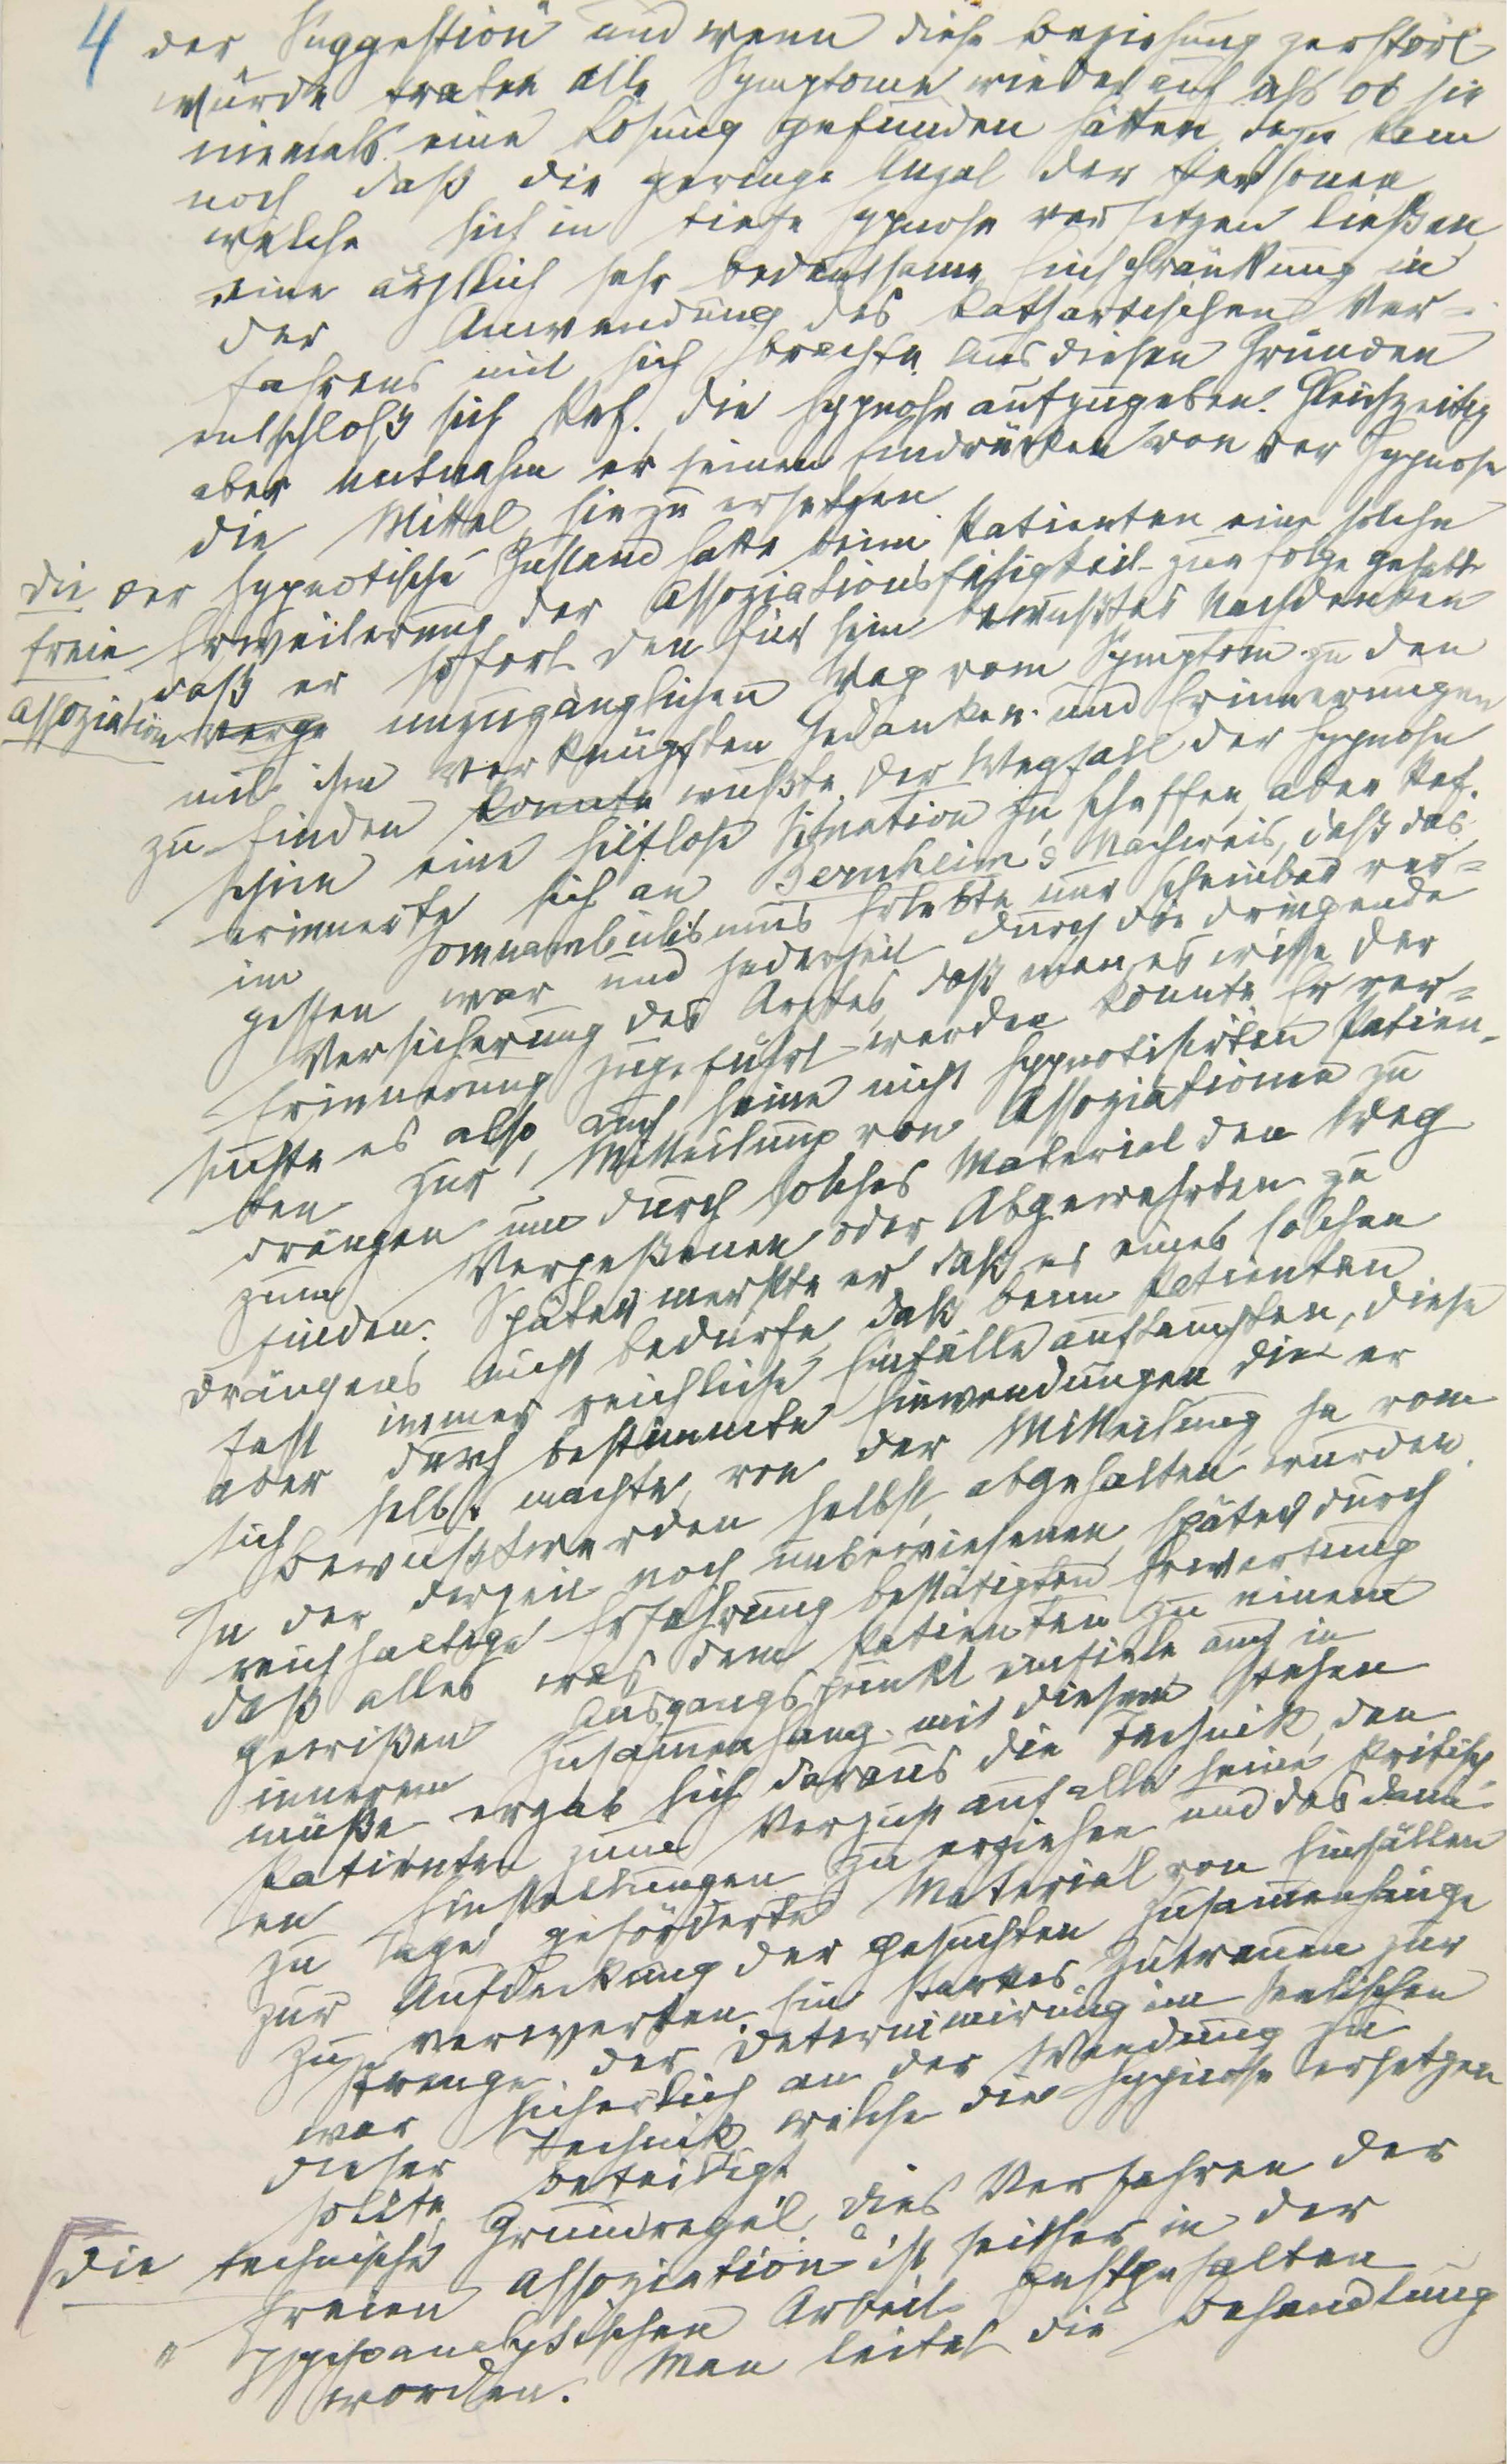 4 der Suggestion und wenn diese Beziehung zerstört
wurde traten alle Symptome wieder auf als ob sie
niemals eine Lösung gefunden hätten, dazu kam
noch daß die geringe Anzal der Personen,
welche sich in tiefe Hypnose versetzen ließen
eine ärztlich sehr bedeutsame Einschränkung in
der Anwendung des kathartischen Ver-
fahrens mit sich brachte. Aus diesen Gründen
entschloß sich Ref. die Hypnose aufzugeben. Gleichzeitig
aber entnahm er seinen Eindrücken von der Hypnose
die Mittel, sie zu ersetzen.
Die der hypnotische Zustand hatte beim Patienten eine solche
freie Erweiterung der Assoziationsfähigkeit zur Folge gehabt
daß er sofort den für sein bewußtes Nachdenken
Assoziation unzugänglichen Weg vom Symptom zu den
mit ihm verknüpften Gedanken und Erinnerungen
zu finden konnte wußte. Der Wegfall der Hypnose
schien eine hilflose Situation zu schaffen, aber Ref.
erinnerte sich an Bernheim's Nachweis, daß das
im Somnambulismus Erlebte nur scheinbar ver-
gessen war und jederzeit durch die dringende
Versicherung des Arztes, daß man es wisse der
Erinnerung zugeführt werden konnte. Er ver-
suchte es also, auch seine nicht hypnotisirten Patien-
ten zur Mitteilung von Assoziationen zu
drängen um durch solches Material den Weg
zum Vergeßenen oder Abgewehrten zu
finden. Später merkte er, daß es eines solchen
Drängens nicht bedürfe, daß beim Patienten
fast immer reichliche Einfälle auftauchten, diese
aber durch bestimmte Einwendungen die er
sich selbst machte, von der Mitteilung, ja vom
Bewußtwerden selbst, abgehalten wurden.
In der derzeit noch unbewiesenen, später durch
reichhaltige Erfahrung bestätigten Erwartung
daß alles was dem Patienten zu einem
gewißen Ausgangspunkt einfiele auch in
innerem Zusammenhang mit diesem stehen
müße ergab sich daraus die Technik, den
Patienten zum Verzicht auf alle seine kritisch-
en Einstellungen zu erziehen und das dann
zu Tage geförderte Material von Einfällen
zur Aufdeckung der gesuchten Zusammenhänge
zu verwerten. Ein starkes Zutrauen zur
Strenge der Determinirung im Seelischen
war sicherlich an der Wendung zu
dieser Technik, welche die Hypnose ersetzen
sollte, beteiligt.
Die technische Grundregel, dies Verfahren der
freien Assoziation ist seither in der
psychoanalytischen Arbeit festgehalten
worden. Man leitet die Behandlung